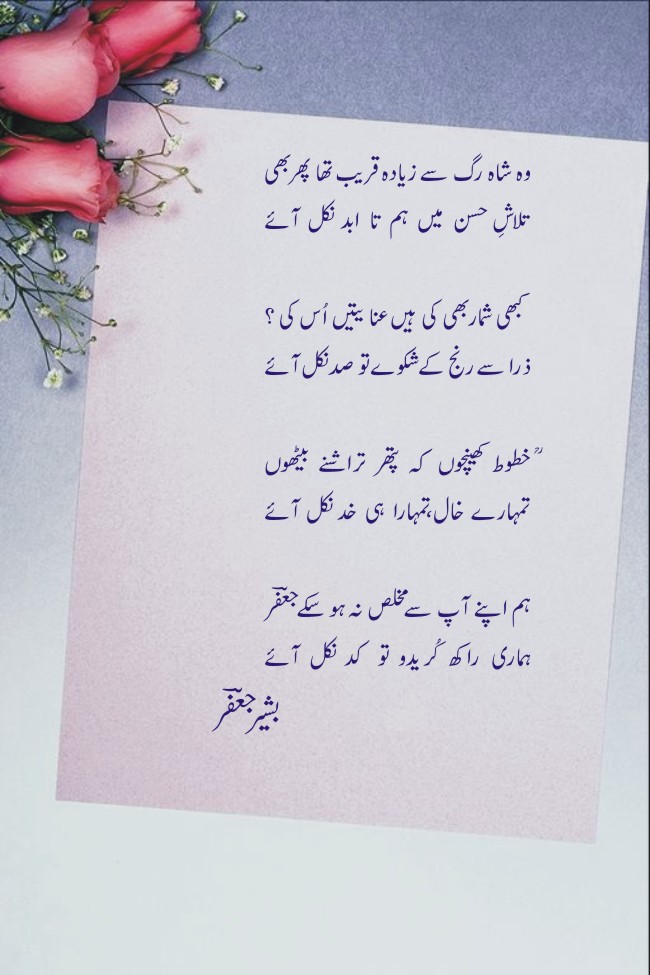 وہ شاہ رگ سے زیادہ قریب تھا پھر بھی
تلاشِ حسن میں ہم تا ابد نکل آئے
کبھی شمار بھی کی ہیں عنایتیں اُس کی ؟
ذرا سے رنج کے شکوے تو صد نکل آئے
خطوط کھینچوں کہ پتھر تراشنے بیٹھوں
تمہارے خال، تمہارا ہی خد نکل آئے
ہم اپنے آپ سے مخلص نہ ہو سکے جعفرؔ
ہماری راکھ کُریدو تو کد نکل آئے
بشیر جعفرؔ